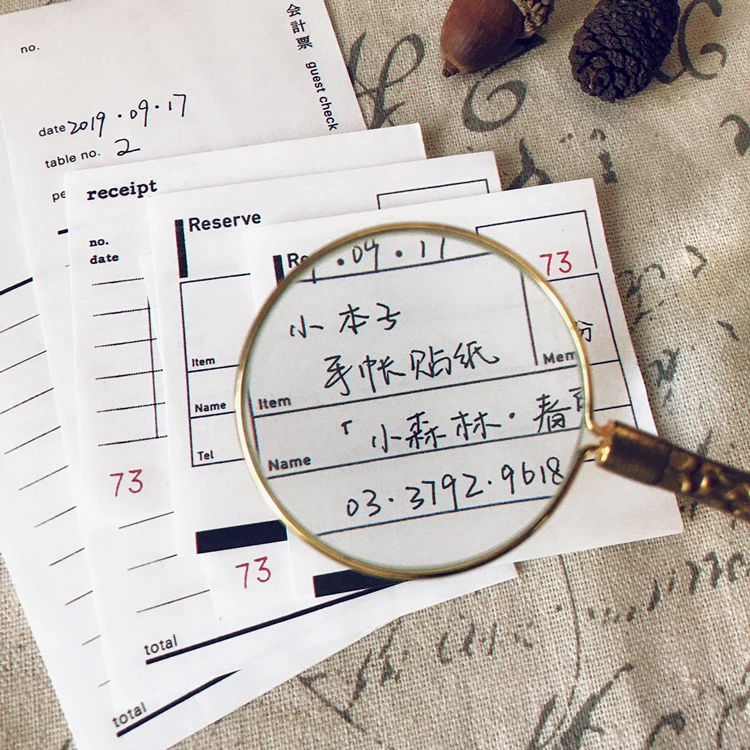 会計票 guest check
no.
date 2019.09.17
table no. 2
pe
receipt
no.
date
73
total
total
Reserve
Item
Name
Tel
73
Re
.09.17
73
小本子
手帐贴纸
Item
Mem
份
「小森林·春
Name
03.3792.9618